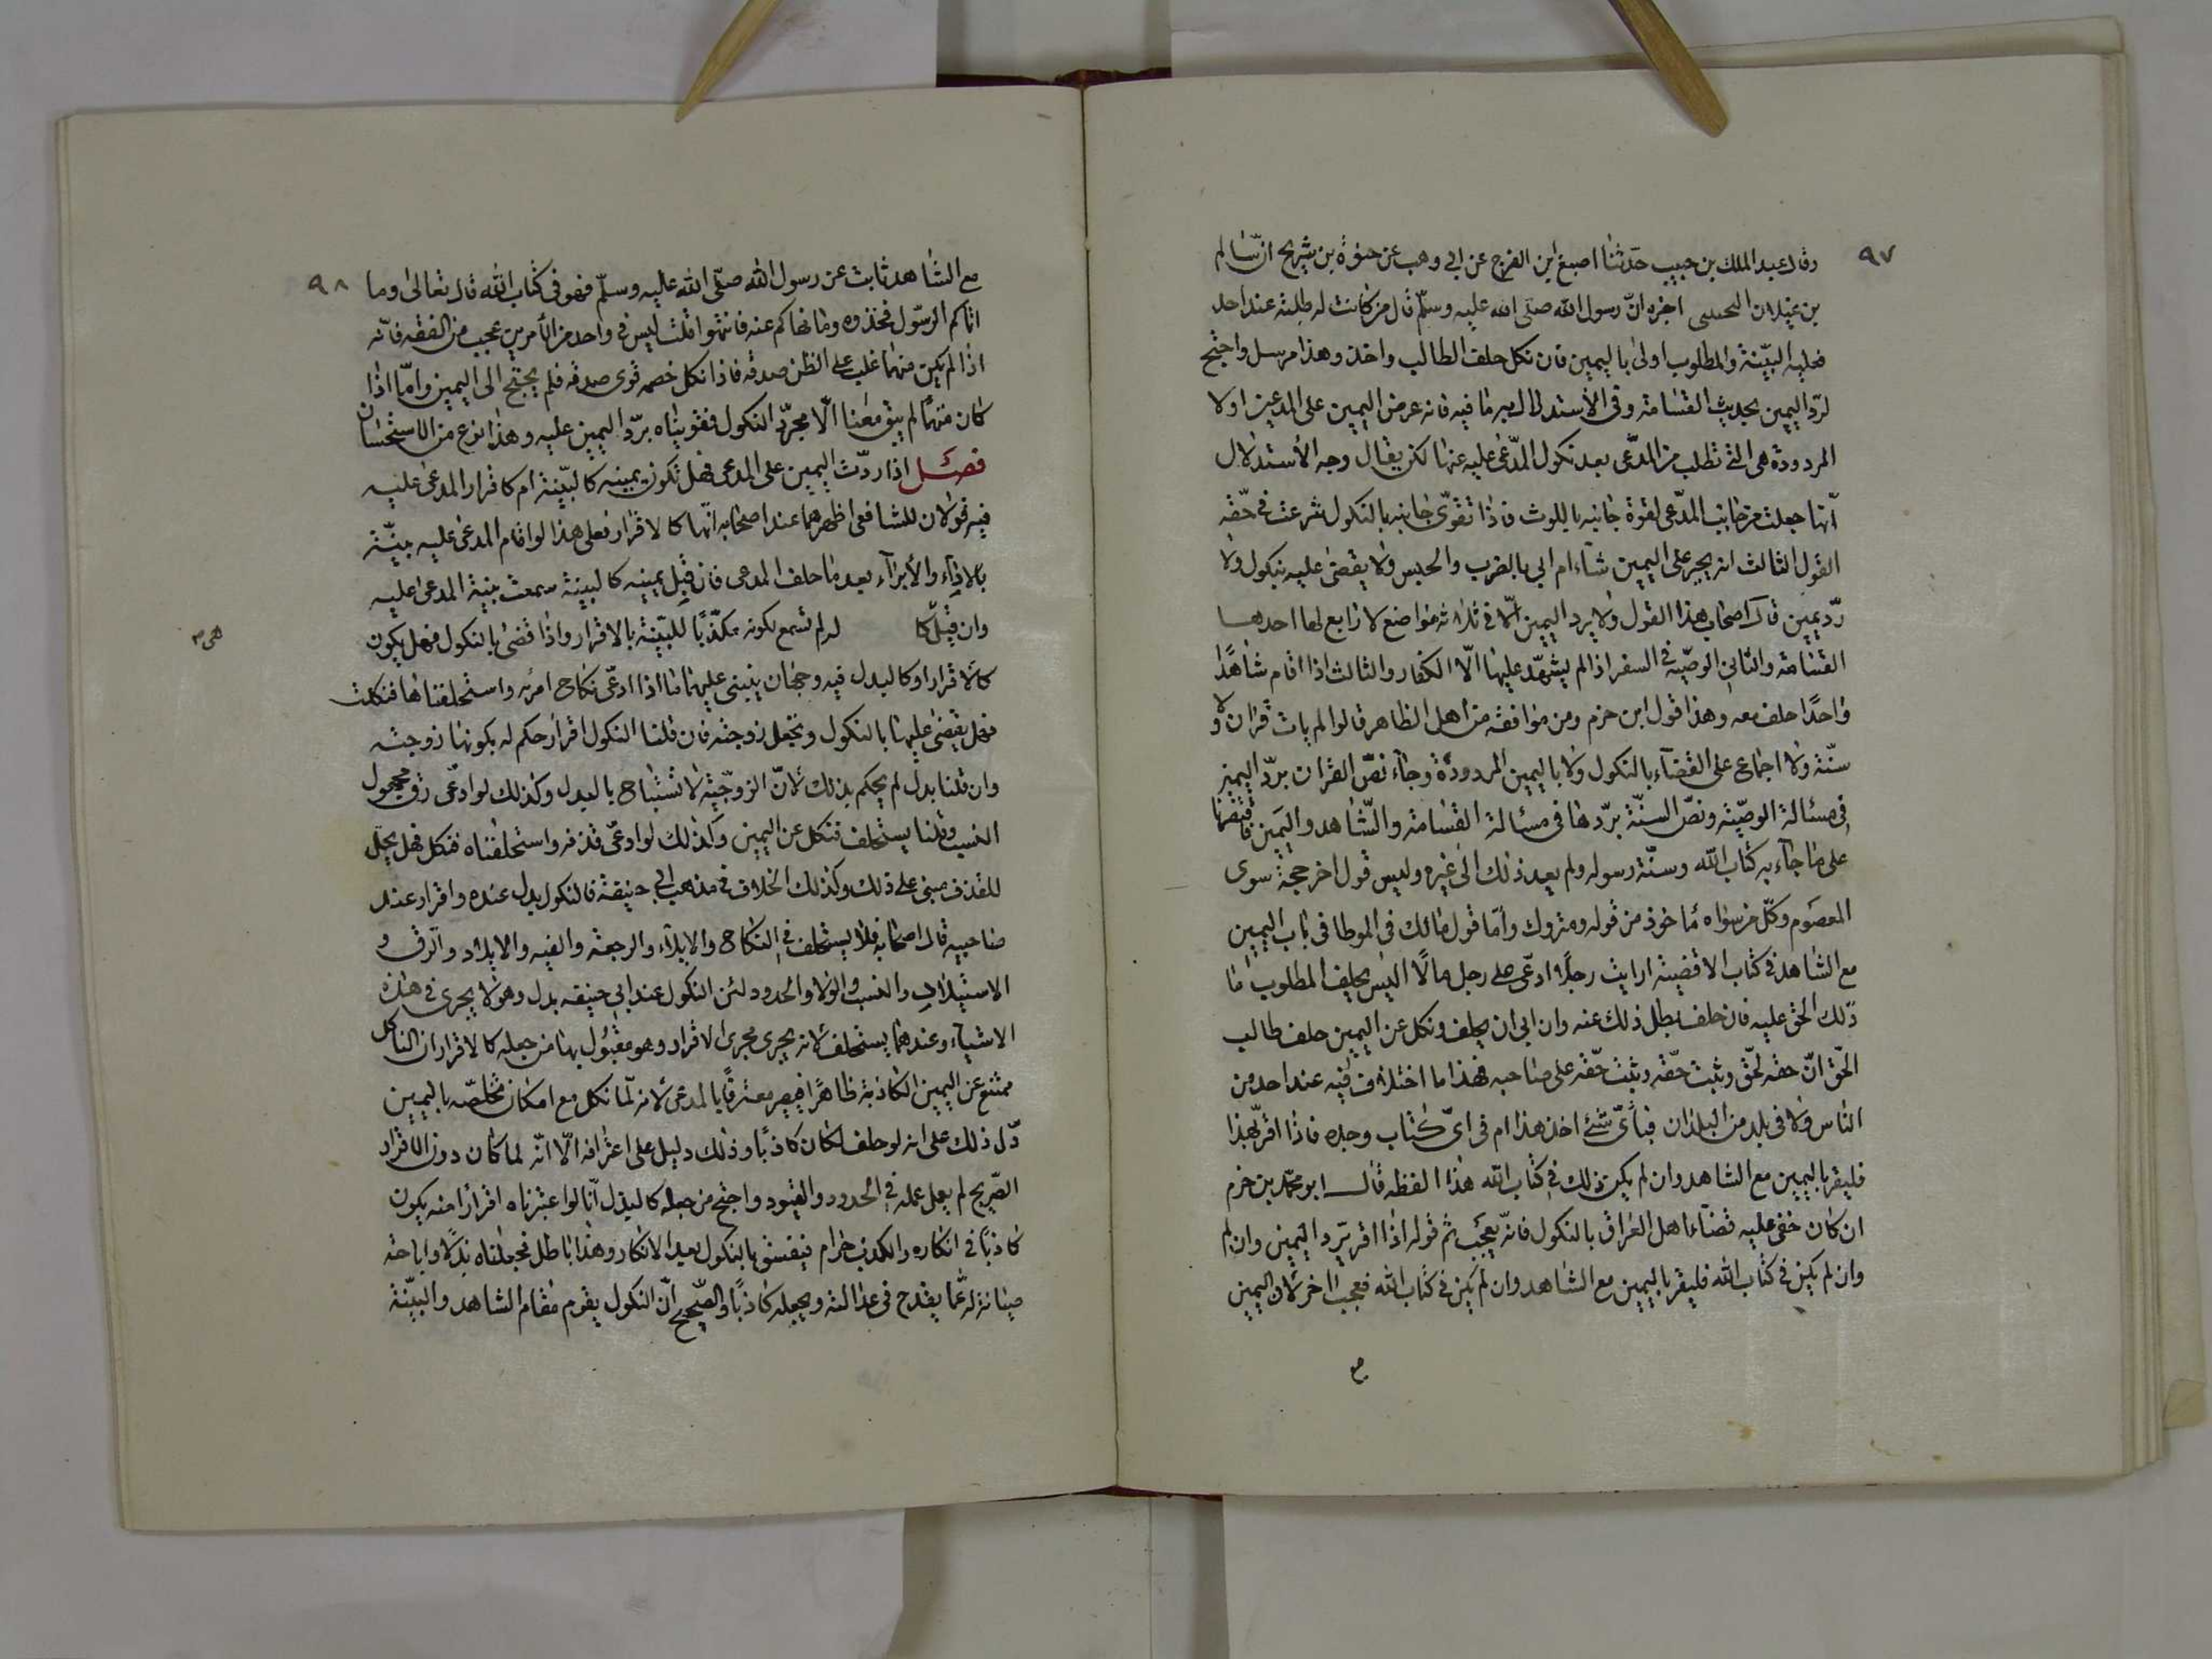 ٩٧
وقال عبد الملك بن حبيب حدثنا اصبغ ابن الفرج عن ابي وهب عن حيوة بن شريح انّ سالم
بن غيلان اخبره انّ رسول الله صلى الله عليه وسلّم قال من كانت له طلبة عند احد
فعليه البيّنة والمطلوب اولى باليمين فان نكل حلف الطالب واخذ وهذا مرسل واحتج
لردّ اليمين بحديث القسامة وفى الأستدلال به ما فيه فانه عرض اليمين على المدعين اولا
المردودة هى التى تطلب من المدّعى بعد نكول المدّعى عليه عنها لكن يقال وجه الأستدلال
انّها جعلت من جانب المدّعى لقوة جانبه باللوث فاذا تقوّى جانبه بالنكول شرعت فى حقّه
القول الثالث انه يجبر على اليمين شآء ام ابى بالضرب والحبس ولا يقضى عليه بنكول ولا
ردّ يمين قال اصحاب هذا القول ولا يرد اليمين الّا فى ثلاثه مواضع لا رابع لها احدها
القسامة والثانى الوصيّه فى السفر اذ الم يشهد عليها الّا الكفار والثالث اذا اقام شاهدًا
واحدًا حلف معه وهذا قول ابن حزم ومن موافقه من اهل الظاهر قالوا لم يات قران ولا
سنّة ولا اجماع على القضآء بالنكول ولا باليمين المردودة وجآء نصّ القران بردّ اليمين
فى مسئالة الوصيّة ونصّ السنّة بردّها فى مسئالة القسامة والشّاهد واليمين فاقتصرنا
على ما جآء به كتاب الله وسنّة رسوله ولم يعد ذلك الى غيره وليس قول اخر حجة سوى
المعصوم وكلّ من سواه مأخوذ من قوله ومتروك وامّا قول مالك فى الموطا فى باب اليمين
مع الشاهد فى كتاب الاقضية ارايت رجلًا ادعّى على رجل مالًا اليس يحلف المطلوب ما
ذلك الحق عليه فان حلف بطل ذلك عنه وان ابى ان يحلف ونكل عن اليمين حلف طالب
الحّق انّ حقه لحّق وثبت حقّه وثبت حقّه على صاحبه فهذا ما اختلاف فيه عند احد من
الناس ولا فى بلد من البلدان فبأىّ شئ اخذ هذا ام فى اىّ كتاب وجده فاذا اقرّ بهذا
فليقر باليمين مع الشاهد وان لم يكن ذلك فى كتاب الله هذا الفظه قال ابو محمّد بن حزم
ان كان خفى عليه قضآء اهل العراق بالنكول فانّه يعجب ثم قوله اذا اقر بردّ اليمين وان لم
وان لم يكن فى كتاب الله فليقر باليمين مع الشاهد وان لم يكن فى كتاب الله فعجب اخر لان اليمين
٩٨
مع الشاهد ثابت عن رسول الله صلّى الله عليه وسلّم فهو فى كتاب الله قال تعالى وما
اتاكم الرسّول فخذوه وما نهاكم عنه فانتهوا قلت ليس فى واحد من الأمرين عجب من الفقه فانّه
اذا لم يكن متهما غلب على الظن صدقه فاذا نكل خصمه قوى صدقه فلم يحتج الى اليمين وامّا اذا
كان متهمًا لم يبق معنا الّا مجرّد النكول فقويناه بردّ اليمين عليه وهذا نوع من الاستحسان
فصل اذا ردّت اليمين على المدعى فهل تكون يمينه كالبيّنة ام كاقرار المدعى عليه
فيه قولان للشافعى اظهرهما عند اصحابه انّها كالاقرار فعلى هذا لو اقام المدعى عليه بيّنة
بالادآء والأبرآء بعد ما حلف المدعى فان قيل يمينه كالبينة سمعت بنية المدعى عليه
وان قيل كا له لم تسمع لكونه مكذّبًا للبيّنة بالاقرار واذا قضى بالنكول فهل يكون
هى م
كالاقرار او كالبدل فيه وجهان ينبنى عليهما ما اذا ادعّى نكاح امرئه واستحلفناها فنكلت
فهل يقضى عليها بالنكول وتجعل زوجته فان قلنا النكول اقرار حكم له بكونها زوجته
وان قلنا بدل لم يحكم بذلك لانّ الزوجّية لا تستباح بالبدل وكذلك لو ادعّى رق مجهول
النسب وقلنا يستحلف فنكل عن اليمين وكذلك لو ادعّى قذفه واستحلفناه فنكل فهل يحل
للقذف مبنى على ذلك وكذلك الخلاف فى مذهب ابى حنيفة فالنكول بدل عنده واقرار عند
صاحبيه قال اصحابه فلا يستحلف فى النكاح والايلآء والرجعة والفيه والايلاد والرق و
الاستيلاد والنسب والولا والحدود لئن النكول عند ابى حنيفه بدل وهو لا يجرى فى هذه
الاشيآء وعندهما يستحلف لانه يجرى مجرى الاقرار وهو مقبول بها من جعله كالاقرار ان الناكل
ممتنع عن اليمين الكاذبة ظاهرًا فيصير معترفًا بالمدعى لانه لّما نكل مع امكان تخلصّه باليمين
دّل ذلك على انه لو حلف لكان كاذبًا وذلك دليل على اعترافه الّا انّه لما كان دون الاقرار
الصّريح لم يعمل عمله فى الحدود والقيود واحتج من جعله كالبذل انّا لو اعتبرناه اقرارًا منه يكون
كاذبًا فى انكاره والكذب حرام فيفسّق بالنكول بعد الانكار وهذا باطل فجعلناه بذلًا واباحة
صيانة له عمّا يقدح فى عدالته ويجعله كاذبًا والصّحيح انّ النكول يقوم مقام الشاهد والبيّنة